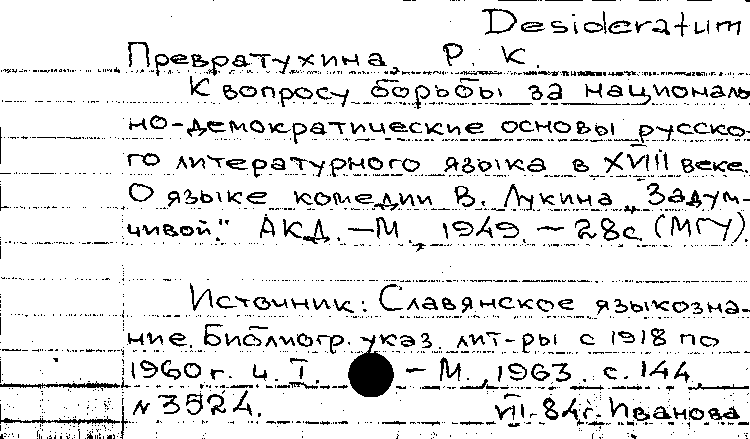 Desideratum
Превратухина, Р. К.
К вопросу борьбы за националь
но-демократические основы русско-
го литературного языка в XVIII веке.
О языке комедии В. Лукина „Задум-
чивой." АКД. – М., 1949. – 28с. (МГУ).
Источник: Славянское языкозна-
ние. Библиогр. указ. лит-ры с 1918 по
1960 г. ч. I. – М., 1963. с. 144,
N 3524. VII-84г. Иванова